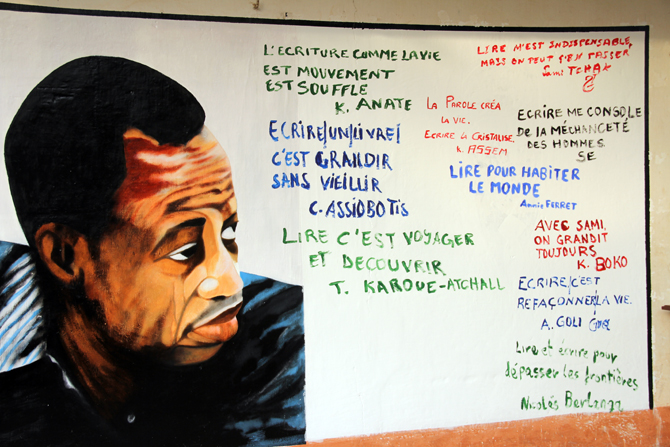 L'ECRITURE COMME LA VIE
EST MOUVEMENT
EST SOUFFLE
K. ANATE
ECRIRE UN LIVRE
C'EST GRANDIR
SANS VIEILLIR
C. ASSIOBOTIS
LIRE C'EST VOYAGER
ET DECOUVRIR
T. KAROUE-ATCHALL
LIRE M'EST INDISPENSABLE,
MAIS ON PEUT S'EN PASSER
Sami TCHAK
LA PAROLE CRÉA
LA VIE.
ECRIRE LA CRISTALISE.
K. ASSEM
ECRIRE ME CONSOLE
DE LA MÉCHANCETÉ
DES HOMMES.
SE
LIRE POUR HABITER
LE MONDE
Annie FERRET
AVEC SAMI,
ON GRANDIT
TOUJOURS
K. BOKO
ECRIRE, C'EST
REFAÇONNER LA VIE.
A. GOLI
Lire et écrire pour
dépasser les frontières
Nicolás Berlanga